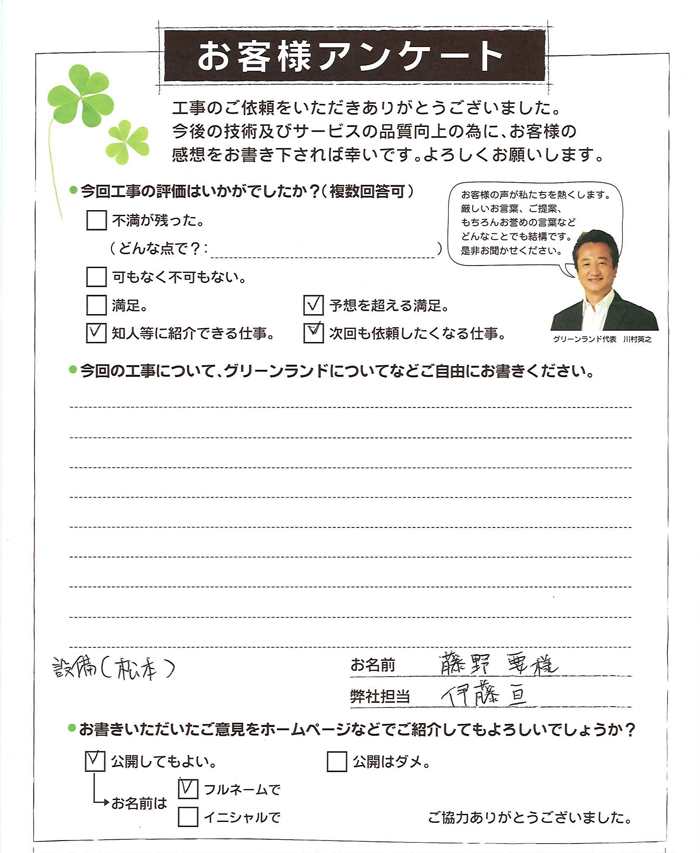 お客様アンケート
工事のご依頼をいただきありがとうございました。
今後の技術及びサービスの品質向上の為に、お客様の
感想をお書き下されば幸いです。よろしくお願いします。
今回工事の評価はいかがでしたか？（複数回答可）
不満が残った。
（どんな点で？：　）
可もなく不可もない。
満足。
予想を超える満足。
知人等に紹介できる仕事。
次回も依頼したくなる仕事。
お客様の声が私たちを熱くします。
厳しいお言葉、ご提案、
もちろんお誉めの言葉など
どんなことでも結構です。
是非お聞かせください。
グリーンランド代表　川村英之
今回の工事について、グリーンランドについてなどご自由にお書きください。
設備（松本）
お名前　藤野 要様
弊社担当　伊藤 亘
お書きいただいたご意見をホームページなどでご紹介してもよろしいでしょうか？
公開してもよい。
公開はダメ。
お名前は
フルネームで
イニシャルで
ご協力ありがとうございました。